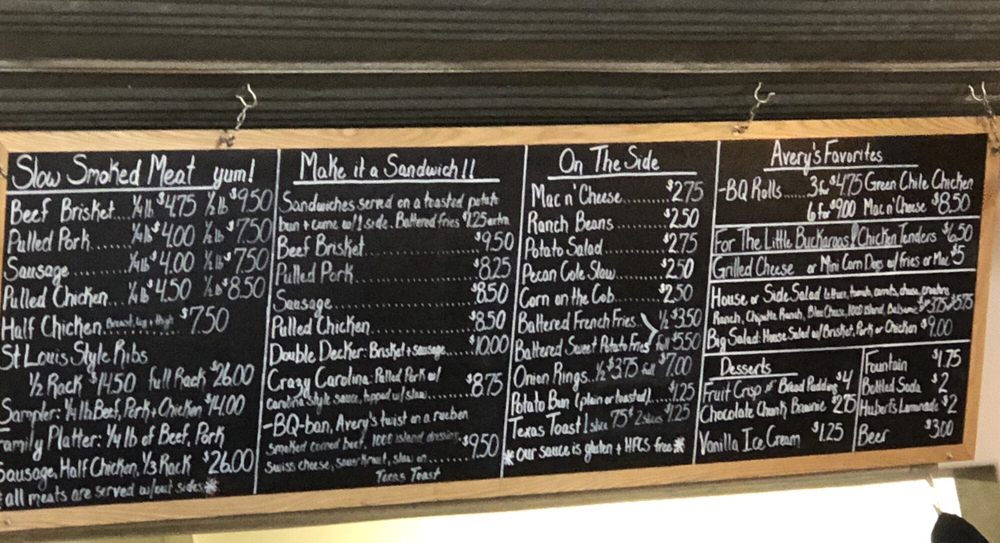 Slow Smoked Meat yum!
Beef Brisket.... 1/4 lb $4.75 1/2 lb $9.50
Pulled Pork........ 1/4 lb $4.00 1/2 lb $7.50
Sausage............ 1/4 lb $4.00 1/2 lb $7.50
Pulled Chicken... 1/4 lb $4.50 1/2 lb $8.50
Half Chicken Breast, leg + thigh $7.50
St Louis Style Ribs
1/2 Rack $14.50 full Rack $26.00
Sampler: 1/4 lb Beef, Pork + Chicken $14.00
Family Platter: 1/4 lb of Beef, Pork
Sausage, Half Chicken, 1/3 Rack $26.00
*all meats are served w/out sides*
Make it a Sandwich!!
Sandwiches served on a toasted potato
bun + come w/ 1 side. Battered fries $1.25 extra
Beef Brisket........ $9.50
Pulled Pork........ $8.25
Sausage........ $8.50
Pulled Chicken........ $8.50
Double Decker: Brisket + sausage...... $10.00
Crazy Carolina: Pulled Pork w/
carolina style sauce, topped w/ slaw...... $8.75
-BQ-ban, Avery's twist on a rueben
Smoked corned beef, 1000 island dressing,
Swiss cheese, sauerkraut, slaw on........ $9.50
Texas Toast
On The Side
Mac n' Cheese........ $2.75
Ranch Beans........ $2.50
Potato Salad........ $2.75
Pecan Cole Slaw..... $2.50
Corn on the Cob....... $2.50
Battered French Fries.. 1/2 $3.50
Battered Sweet Potato Fries full $5.50
Onion Rings.. 1/2 $3.75 full $7.00
Potato Bun (plain or toasted)..... $1.25
Texas Toast 1 slice 75¢ 2 slices $1.25
*Our sauce is gluten + HFCS free*
Avery's Favorites
-BQ Rolls.... 3 for $4.75 Green Chile Chicken
6 for $9.00 Mac n' Cheese $8.50
For The Little Buckaroos! Chicken Tenders $6.50
Grilled Cheese or Mini Corn Dogs w/ fries or Mac $5
House or Side Salad lettuce, tomato, carrots, cheese, croutons
Ranch, Chipotle Ranch, Bleu Cheese, 1000 Island, Balsamic $3.75 $5.75
Big Salad: House Salad w/ Brisket, Pork or Chicken $9.00
Desserts
Fruit Crisp or Bread Pudding $4
Chocolate Chunk Brownie $2.75
Vanilla Ice Cream $1.25
Fountain $1.75
Bottled Soda $2
Hubert's Lemonade $2
Beer $3.00